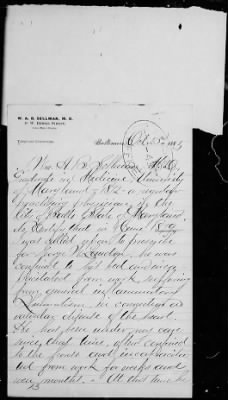 W. A. B. SELLMAN, M. D.
Baltimore, Oct 5th 188
I Wm A. B. Sellman M.D.
Graduate in Medicine University
of Maryland 1872 a regular
practicing physician in the
City of Balto State of Maryland
do Certify that in June 18
I was called upon to prescribe
for George W. he was
confined to his bed and was
from work suffering
from general inflammatory
Rheumatism in connection with
valvular disease of the heart.
He has been under my care
since that time, often confined
to the house and incapacitated
from work for weeks and
even months. At that time he